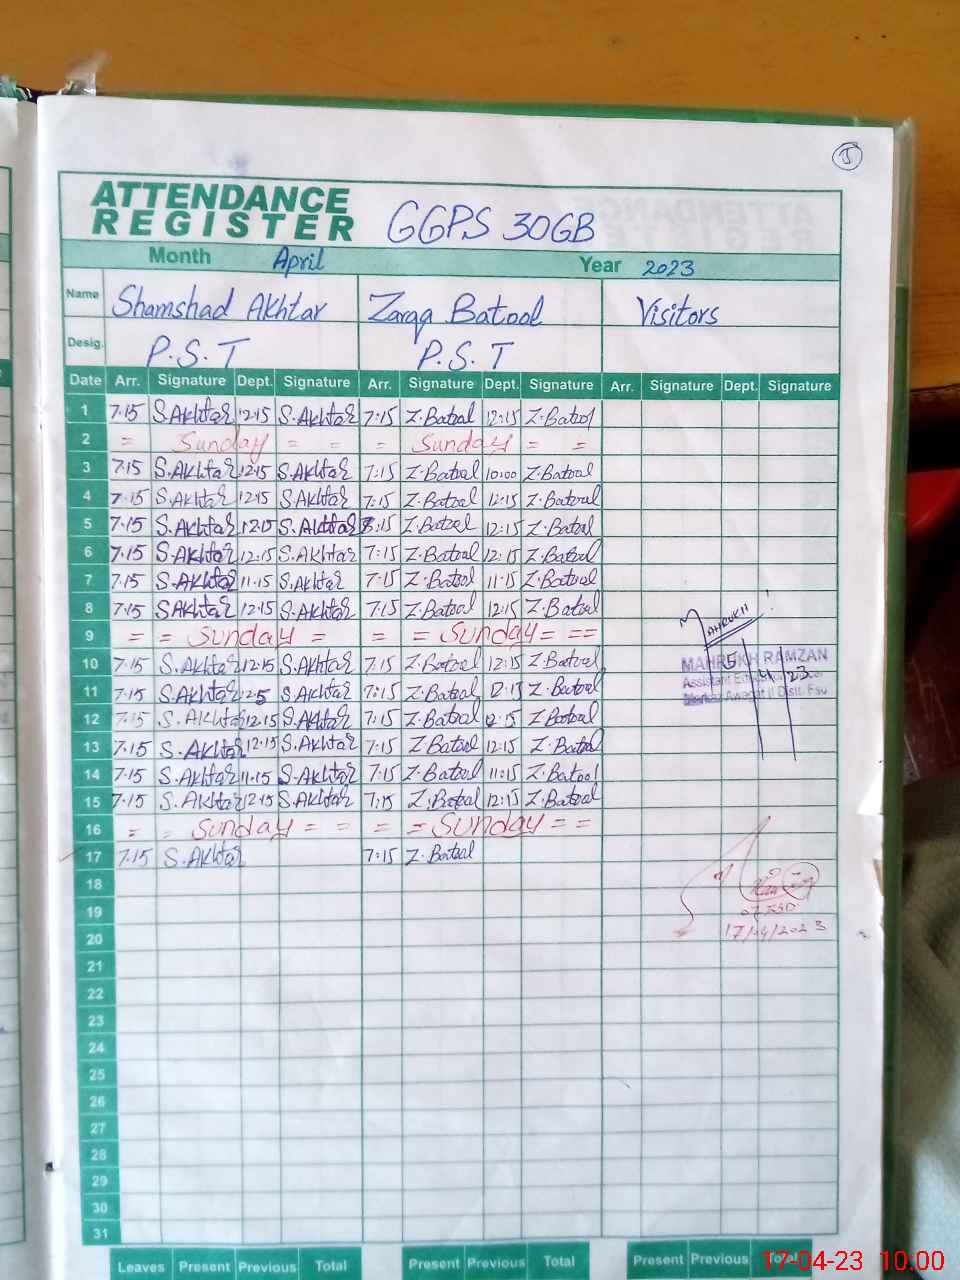 5
ATTENDANCE
REGISTER GGPS 30GB
Month April Year 2023
Name Shamshad Akhtar Zarqa Batool Visitors
Desig. P.S.T P.S.T
Date Arr. Signature Dept. Signature Arr. Signature Dept. Signature Arr. Signature Dept. Signature
1 7.15 S.Akhtar 12.15 S.Akhtar 7:15 Z.Batool 12:15 Z.Batool
2 = Sunday = = = Sunday = =
3 7.15 S.Akhtar 12.15 S.Akhtar 7:15 Z.Batool 10:00 Z.Batool
4 7.15 S.Akhtar 12.15 S.Akhtar 7:15 Z.Batool 12:15 Z.Batool
5 7.15 S.Akhtar 12.15 S.Akhtar :15 Z.Batool 12:15 Z.Batool
6 7.15 S.Akhtar 12.15 S.Akhtar 7:15 Z.Batool 12:15 Z.Batool
7 7.15 S.Akhtar 11.15 S.Akhtar 7:15 Z.Batool 11:15 Z.Batool
8 7.15 SAkhtar 12.15 S.Akhtar 7:15 Z.Batool 12:15 Z.Batool
9 = = Sunday = = = Sunday = ==
10 7.15 S.Akhtar 12.15 S.Akhtar 7:15 Z.Batool 12:15 Z.Batool
11 7.15 S.Akhtar S.Akhtar 7:15 Z.Batool 12:15 Z.Batool
12 7.15 S.Akhtar 12.15 S.Akhtar 7:15 Z.Batool 12:15 Z.Batool
13 7.15 S.Akhtar 12.15 S.Akhtar 7:15 Z.Batool 12:15 Z.Batool
14 7.15 S.Akhtar 11.15 S.Akhtar 7:15 Z.Batool 11:15 Z.Batool
15 7.15 S.Akhtar 12.15 S.Akhtar 7:15 Z.Batool 12:15 Z.Batool
16 = = Sunday = = = = Sunday = =
17 7.15 S.Akhtar 7:15 Z.Batool
18
19
20
21
22
23
24
25
26
27
28
29
30
31
MAHRUKH RAMZAN
Assistant
Markaz Awagat Distt. Fsd
5 4 23
17/04/2023
Leaves Present Previous Total Present Previous Total Present Previous Total
17-04-23 10:00